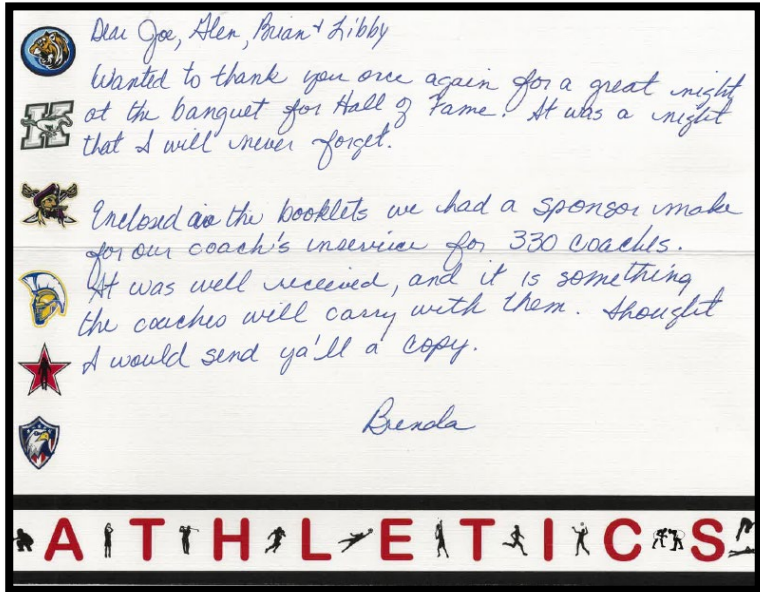 Dear Joe, Alen, Brian & Libby
Wanted to thank you once again for a great night
at the banquet for Hall of Fame. It was a night
that I will never forget.
Enclosed are the booklets we had a sponsor make
for our coach's inservice for 330 coaches.
It was well received, and it is something
the coaches will carry with them. Thought
I would send ya'll a copy.
Brenda
ATHLETICS